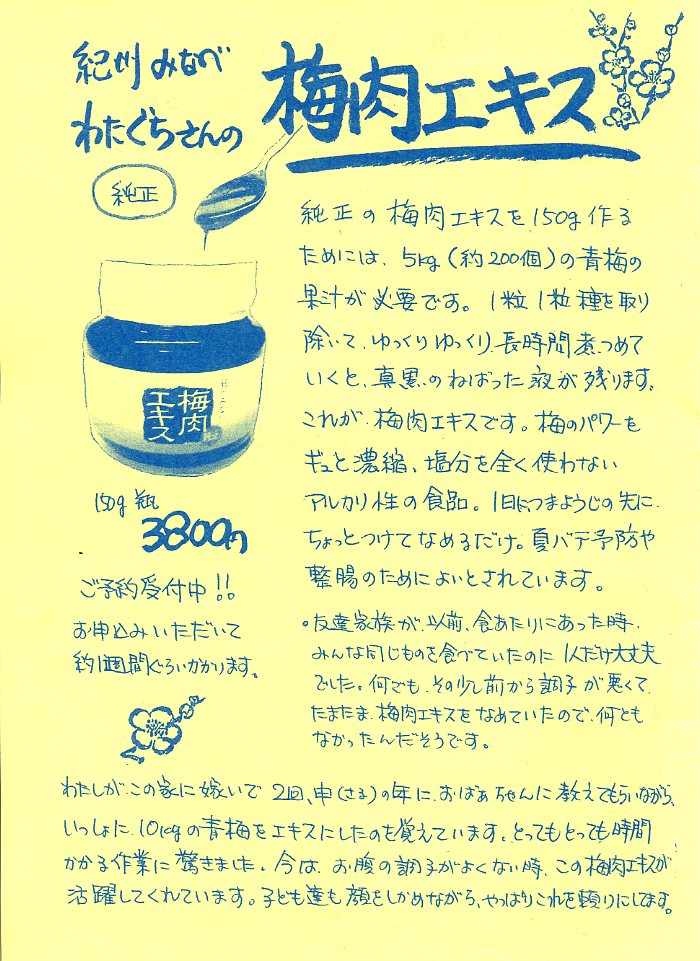 紀州みなべ
わたぐちさんの
梅肉エキス
純正
梅肉
エキス
150g 瓶
3800円
ご予約受付中!!
お申込みいただいて
約1週間ぐらいかかります。
純正の梅肉エキスを150g作る
ためには、5kg(約200個)の青梅の
果汁が必要です。1粒1粒種を取り
除いて、ゆっくりゆっくり、長時間煮つめて
いくと、真黒のねばった液が残ります。
これが、梅肉エキスです。梅のパワーを
ギュと濃縮、塩分を全く使わない
アルカリ性の食品。1日に、つまようじの先に、
ちょっとつけてなめるだけ。夏バテ予防や
整腸のためによいとされています。
。友達家族が、以前、食あたりにあった時、
みんな同じものを食べていたのに1人だけ大丈夫
でした。何でも、その少し前から調子が悪くて、
たまたま、梅肉エキスをなめていたので、何とも
なかったんだそうです。
わたしが、この家に嫁いで2回、申(さる)の年に、おばぁちゃんに教えてもらいながら、
いっしょに、10kgの青梅をエキスにしたのを覚えています。とってもとっても時間
かかる作業に驚きました。今は、お腹の調子がよくない時、この梅肉エキスが
活躍してくれています。子ども達も顔をしかめながら、やっぱりこれを頼りにしてます。